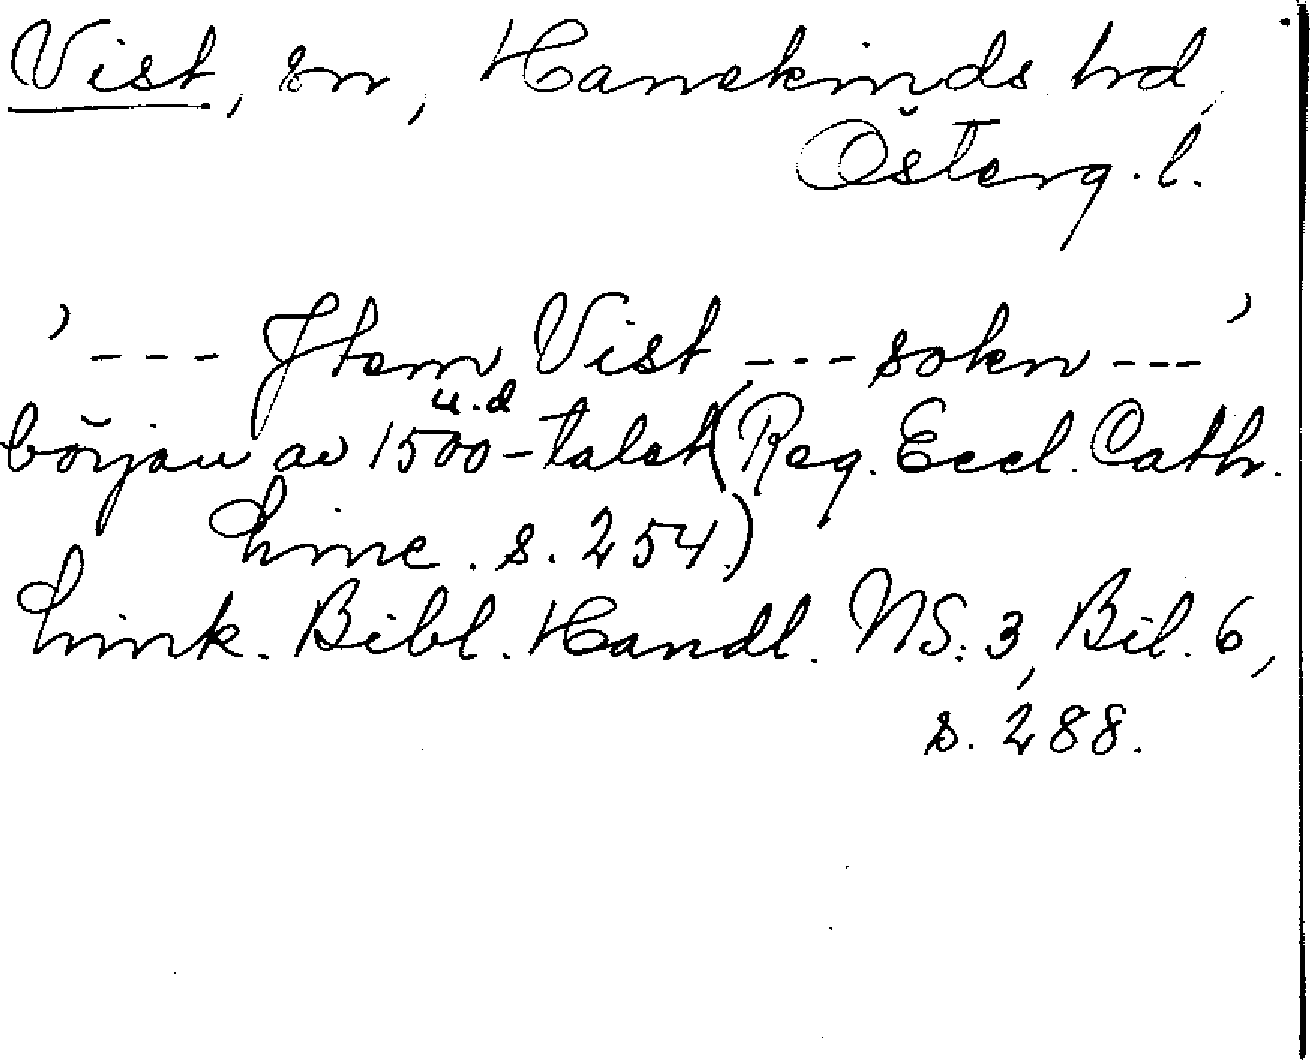 Vist, sn, Hanekinds hd,
Österg. l.
' --- Jtem Vist --- sokn --- '
u.d
början av 1500-talet (Reg. Eccl. Cath.
Linc. s. 254.)
Link. Bibl. Handl. NS: 3, Bil. 6,
s. 288.